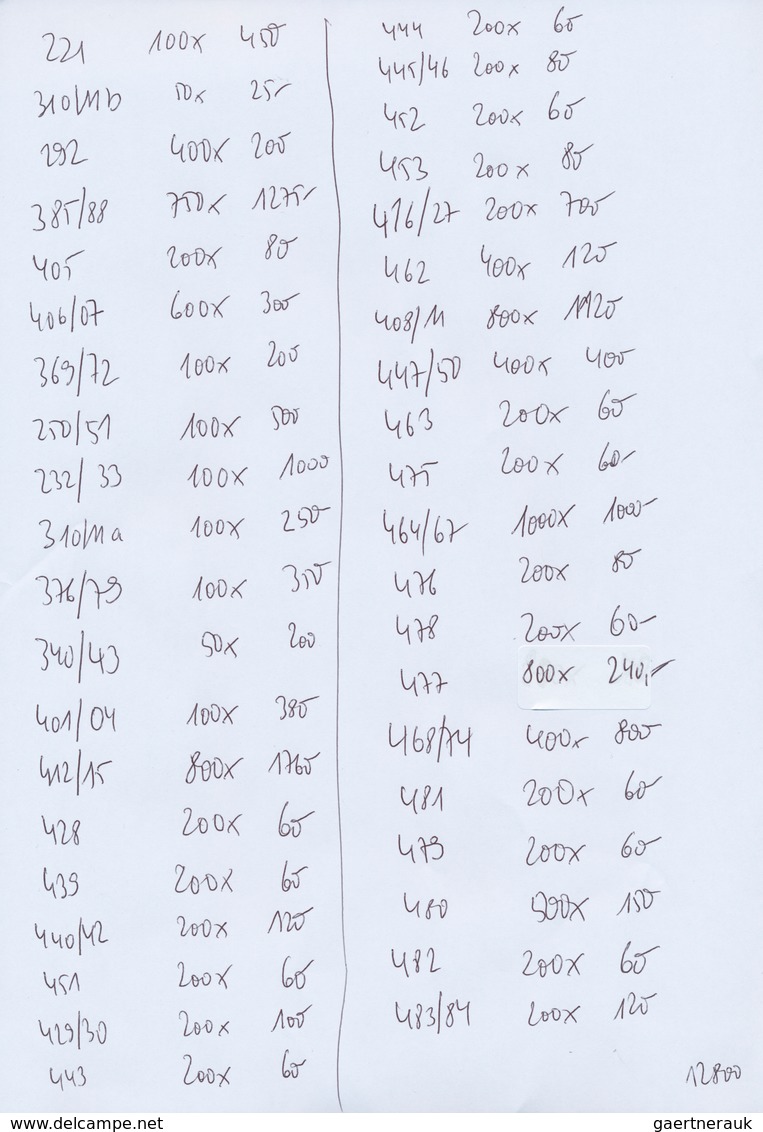 221 100x 450
310/11b 50x 25-
292 400x 200
385/88 750x 1275-
405 200x 80
406/07 600x 300
369/72 100x 200
250/51 100x 500
232/33 100x 1000
310/11a 100x 250
376/79 100x 350
340/43 50x 200
401/04 100x 380
412/15 800x 1760
428 200x 60
439 200x 60
440/42 200x 120
451 200x 60
429/30 200x 100
443 200x 60
444 200x 60
445/46 200x 80
452 200x 60
453 200x 80
416/27 200x 700
462 400x 120
408/11 800x 1120
447/50 400x 400
463 200x 60
475 200x 60-
464/67 1000x 1000-
476 200x 80
478 200x 60-
477 800x 240,-
468/74 400x 800
481 200x 60
479 200x 60
480 500x 150
482 200x 60
483/84 200x 120
12800
www.delcampe.net
gaertnerauk